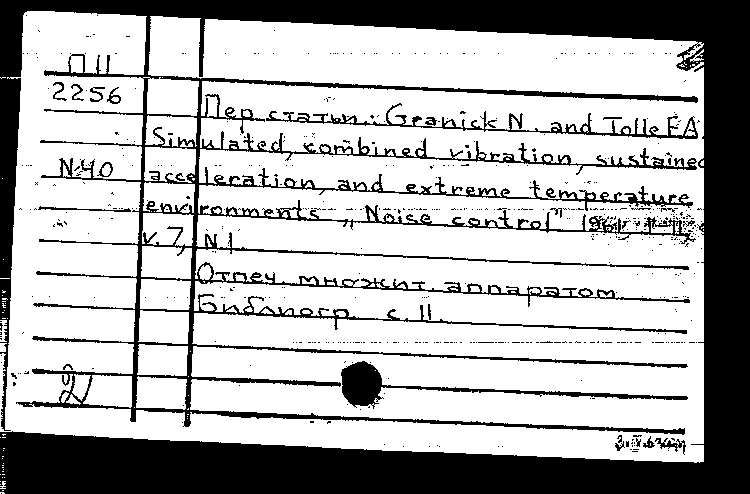 П 11
2256
Пер. статьи: Granick N. and Tolle F.A.
Simulated, combined vibration, sustained
N40 acceleration, and extreme temperature
environments „Noise control" 1961
v. 7, N 1.
Отпеч. множит. аппаратом
Библиогр. с. 11.